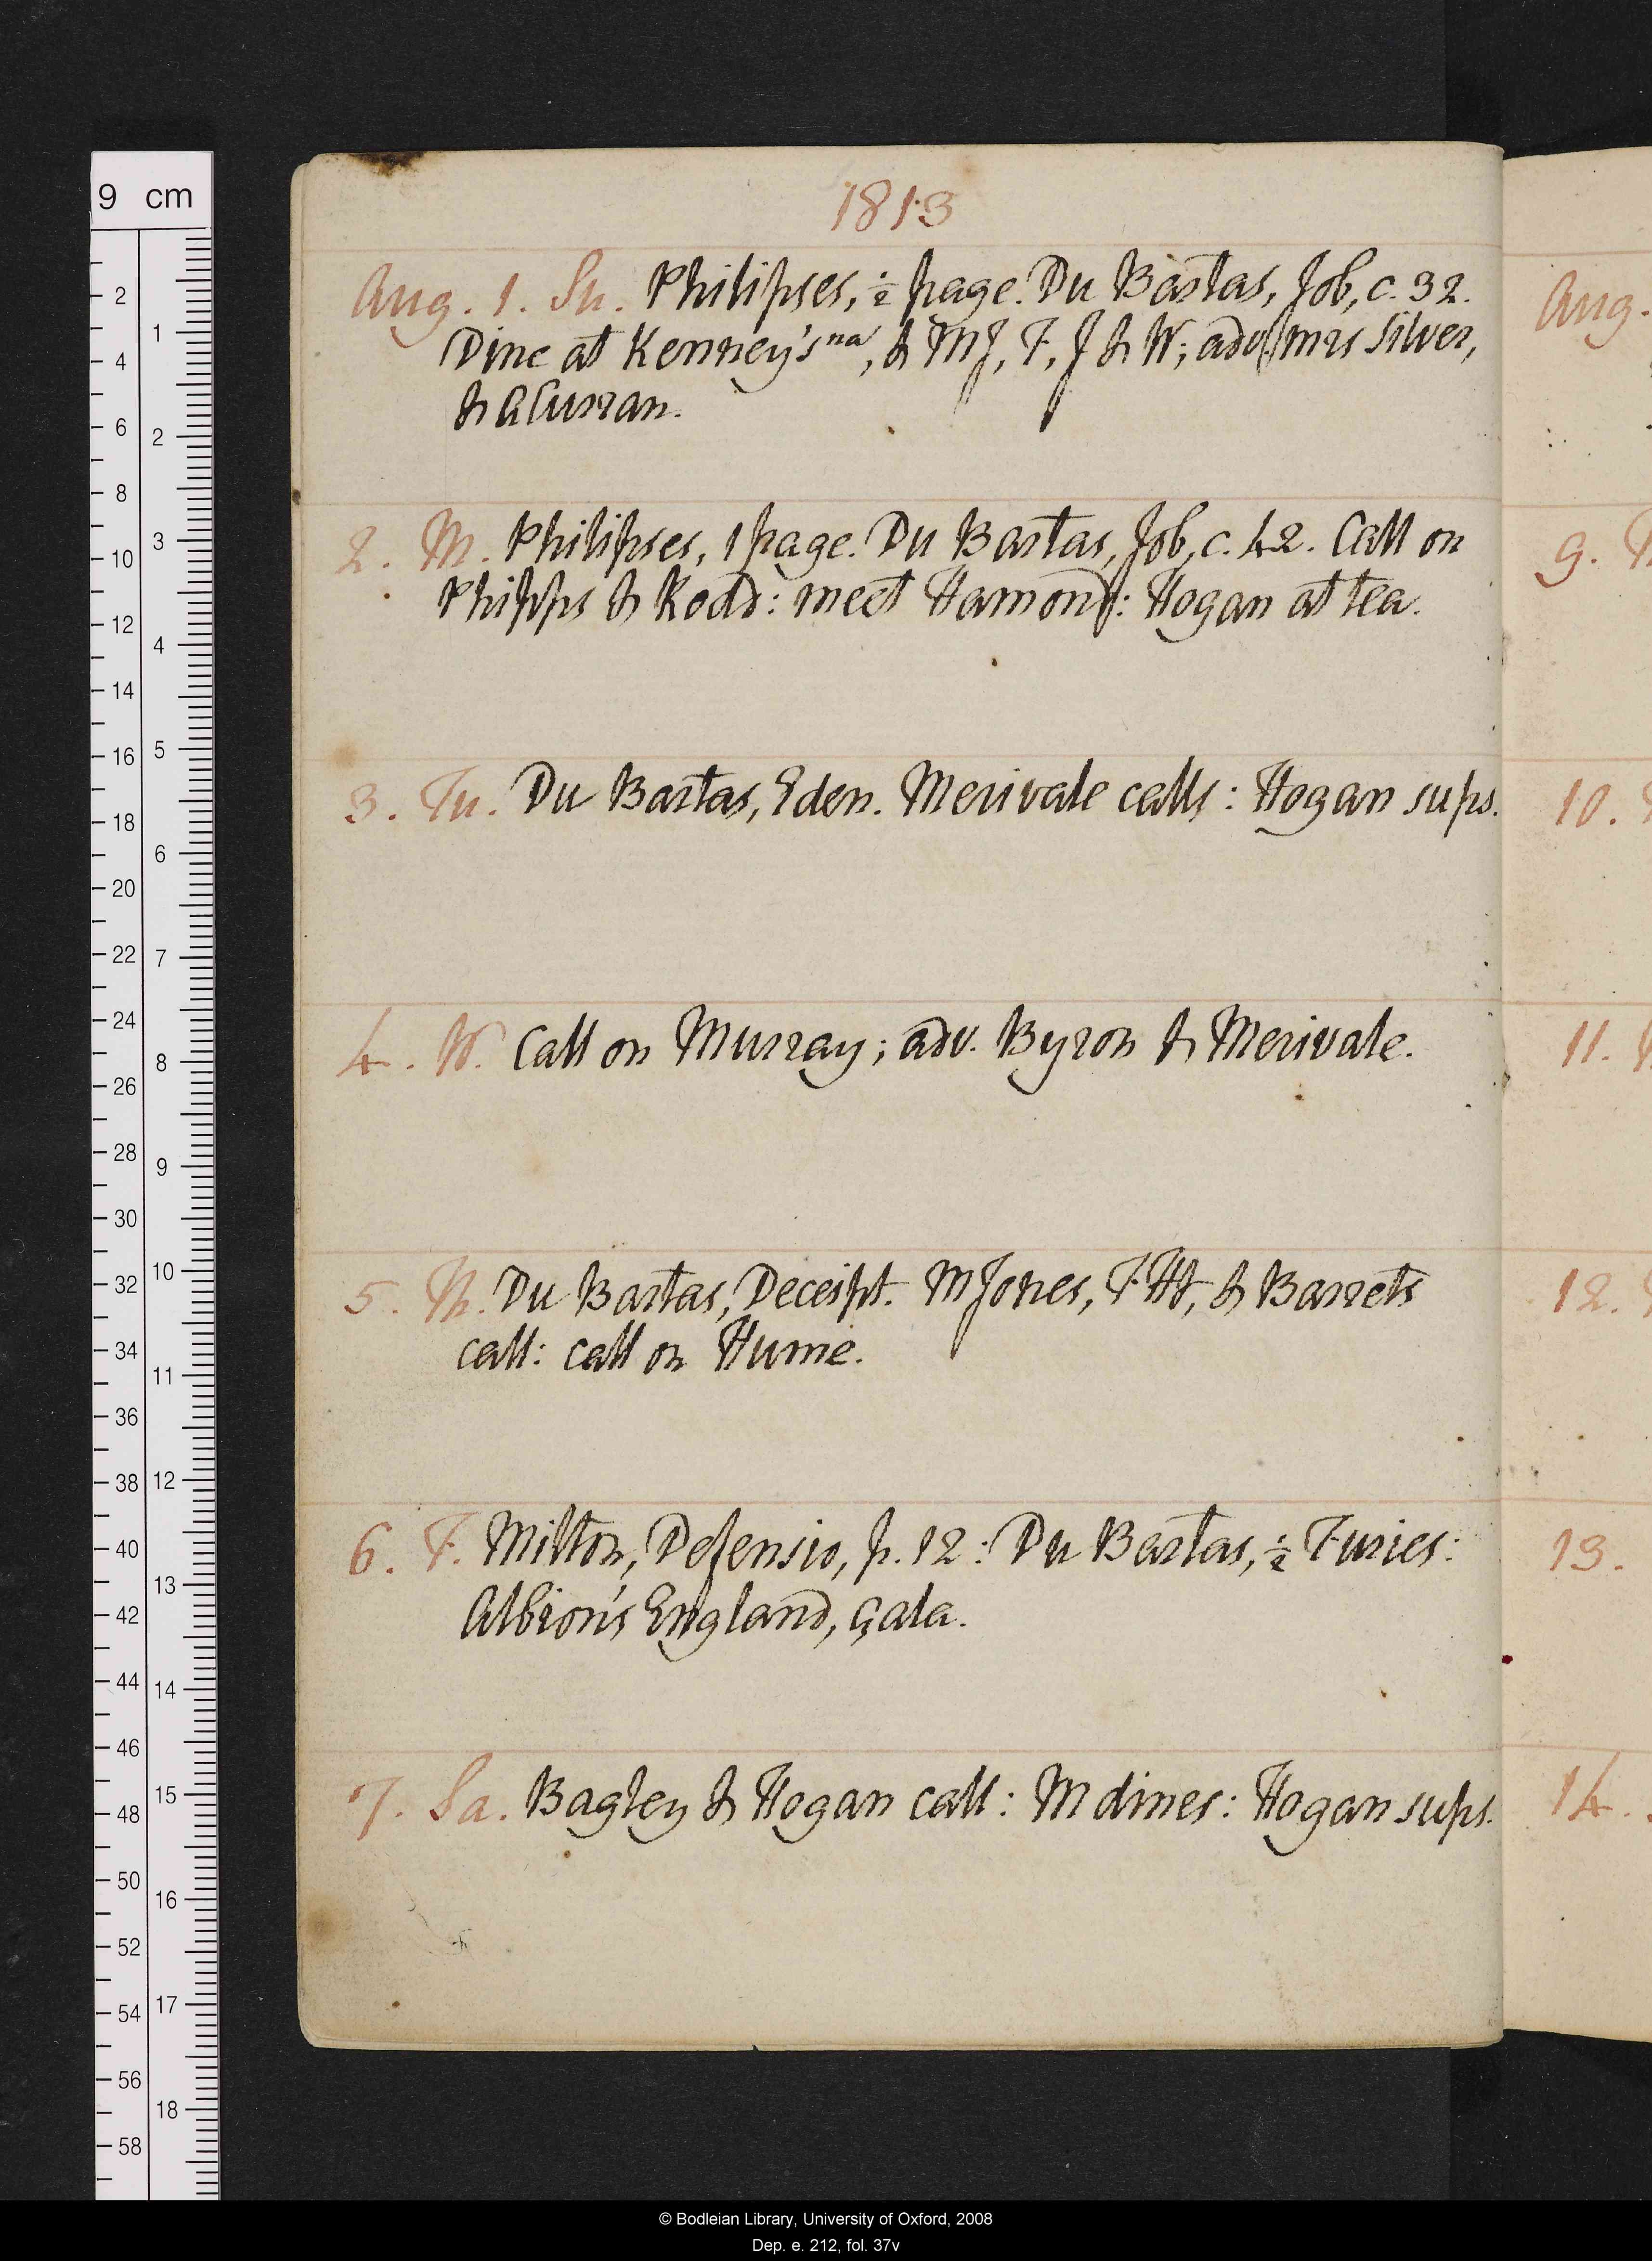 1813
Aug. 1. Su. Philipses, ½ page. Du Bartas, Job, c. 32.
Dine at Kenney's na, & MJ, F, J & W; adv. Mrs Silver,
& A Curran.
2. M. Philipses, 1 page. Du Bartas, Job, c. 42. Call on
Phipps & Rodd: meet Hamond: Hogan at tea.
3. Tu. Du Bartas, Eden. Merivale calls: Hogan sups.
4. W. Call on Murray; adv. Byron & Merivale.
5. Th. Du Bartas, Deceipt. M Jones, F. Ht, & Barrets
call: call on Hume.
6. F. Milton, Defensio, p. 12: Du Bartas, ½ Furies:
Albion's England, çala.
7. Sa. Bagley & Hogan call: M dines: Hogan sups.
Aug.
9.
10.
11.
12.
13.
14.
9 cm
2
4
6
8
10
12
14
16
18
20
22
24
26
28
30
32
34
36
38
40
42
44
46
48
50
52
54
56
58
1
2
3
4
5
6
7
8
9
10
11
12
13
14
15
16
17
18
© Bodleian Library, University of Oxford, 2008
Dep. e. 212, fol. 37v